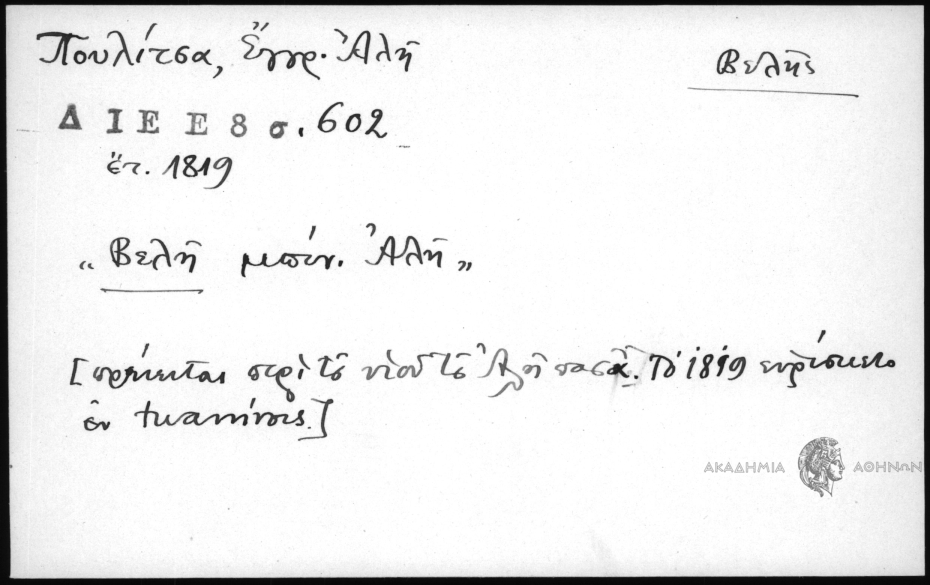 Πουλίτσα, Ἔγγρ. Ἀλῆ
Βελῆς
Δ Ι Ε Ε 8 σ. 602
ἔτ. 1819
„ Βελῆ μπέν. Ἀλῆ „
[πρόκειται περὶ τοῦ υἱοῦ τοῦ Ἀλῆ πασᾶ. Τὸ 1819 εὑρίσκετο
ἐν Ἰωαννίνοις.]
ΑΚΑΔΗΜΙΑ ΑΘΗΝΩΝ